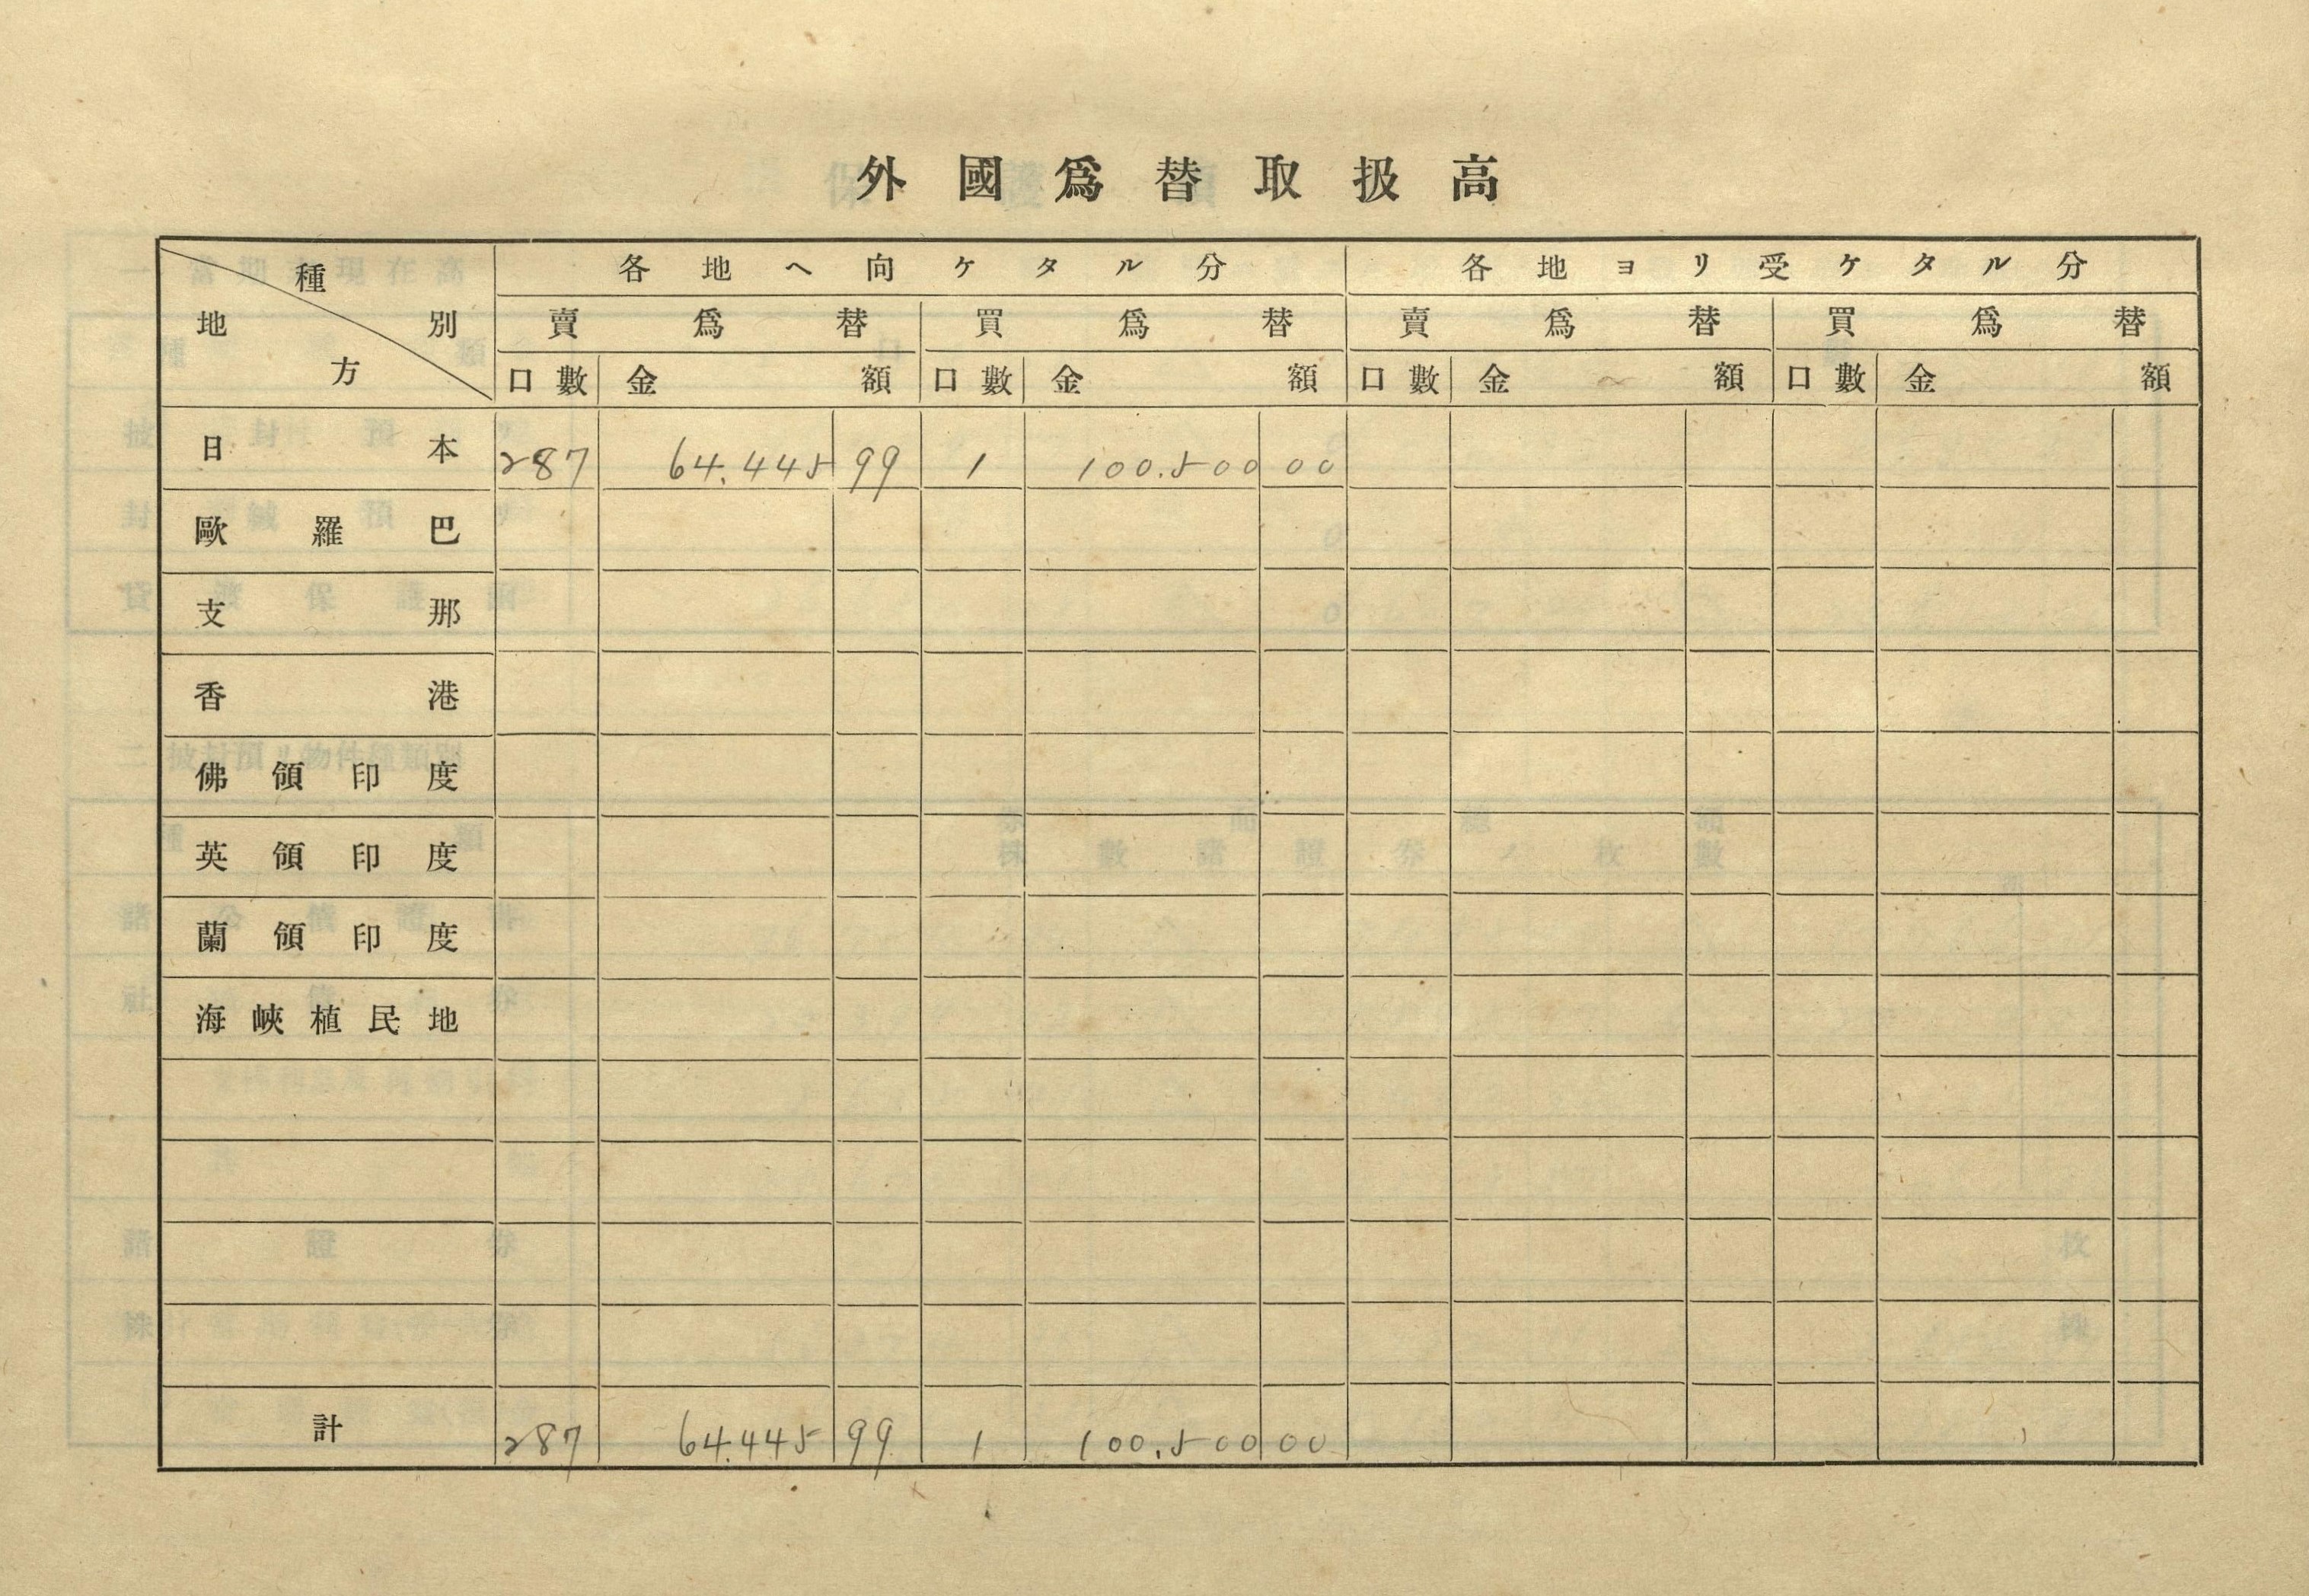 外國爲替取扱高
種別 地方 各地ヘ向ケタル分 各地ヨリ受ケタル分
賣爲替 買爲替 賣爲替 買爲替
口數 金額 口數 金額 口數 金額 口數 金額
日本 287 64.445 99 1 100.500 00
歐羅巴
支那
香港
佛領印度
英領印度
蘭領印度
海峽植民地
計 287 64.445 99 1 100.500 00